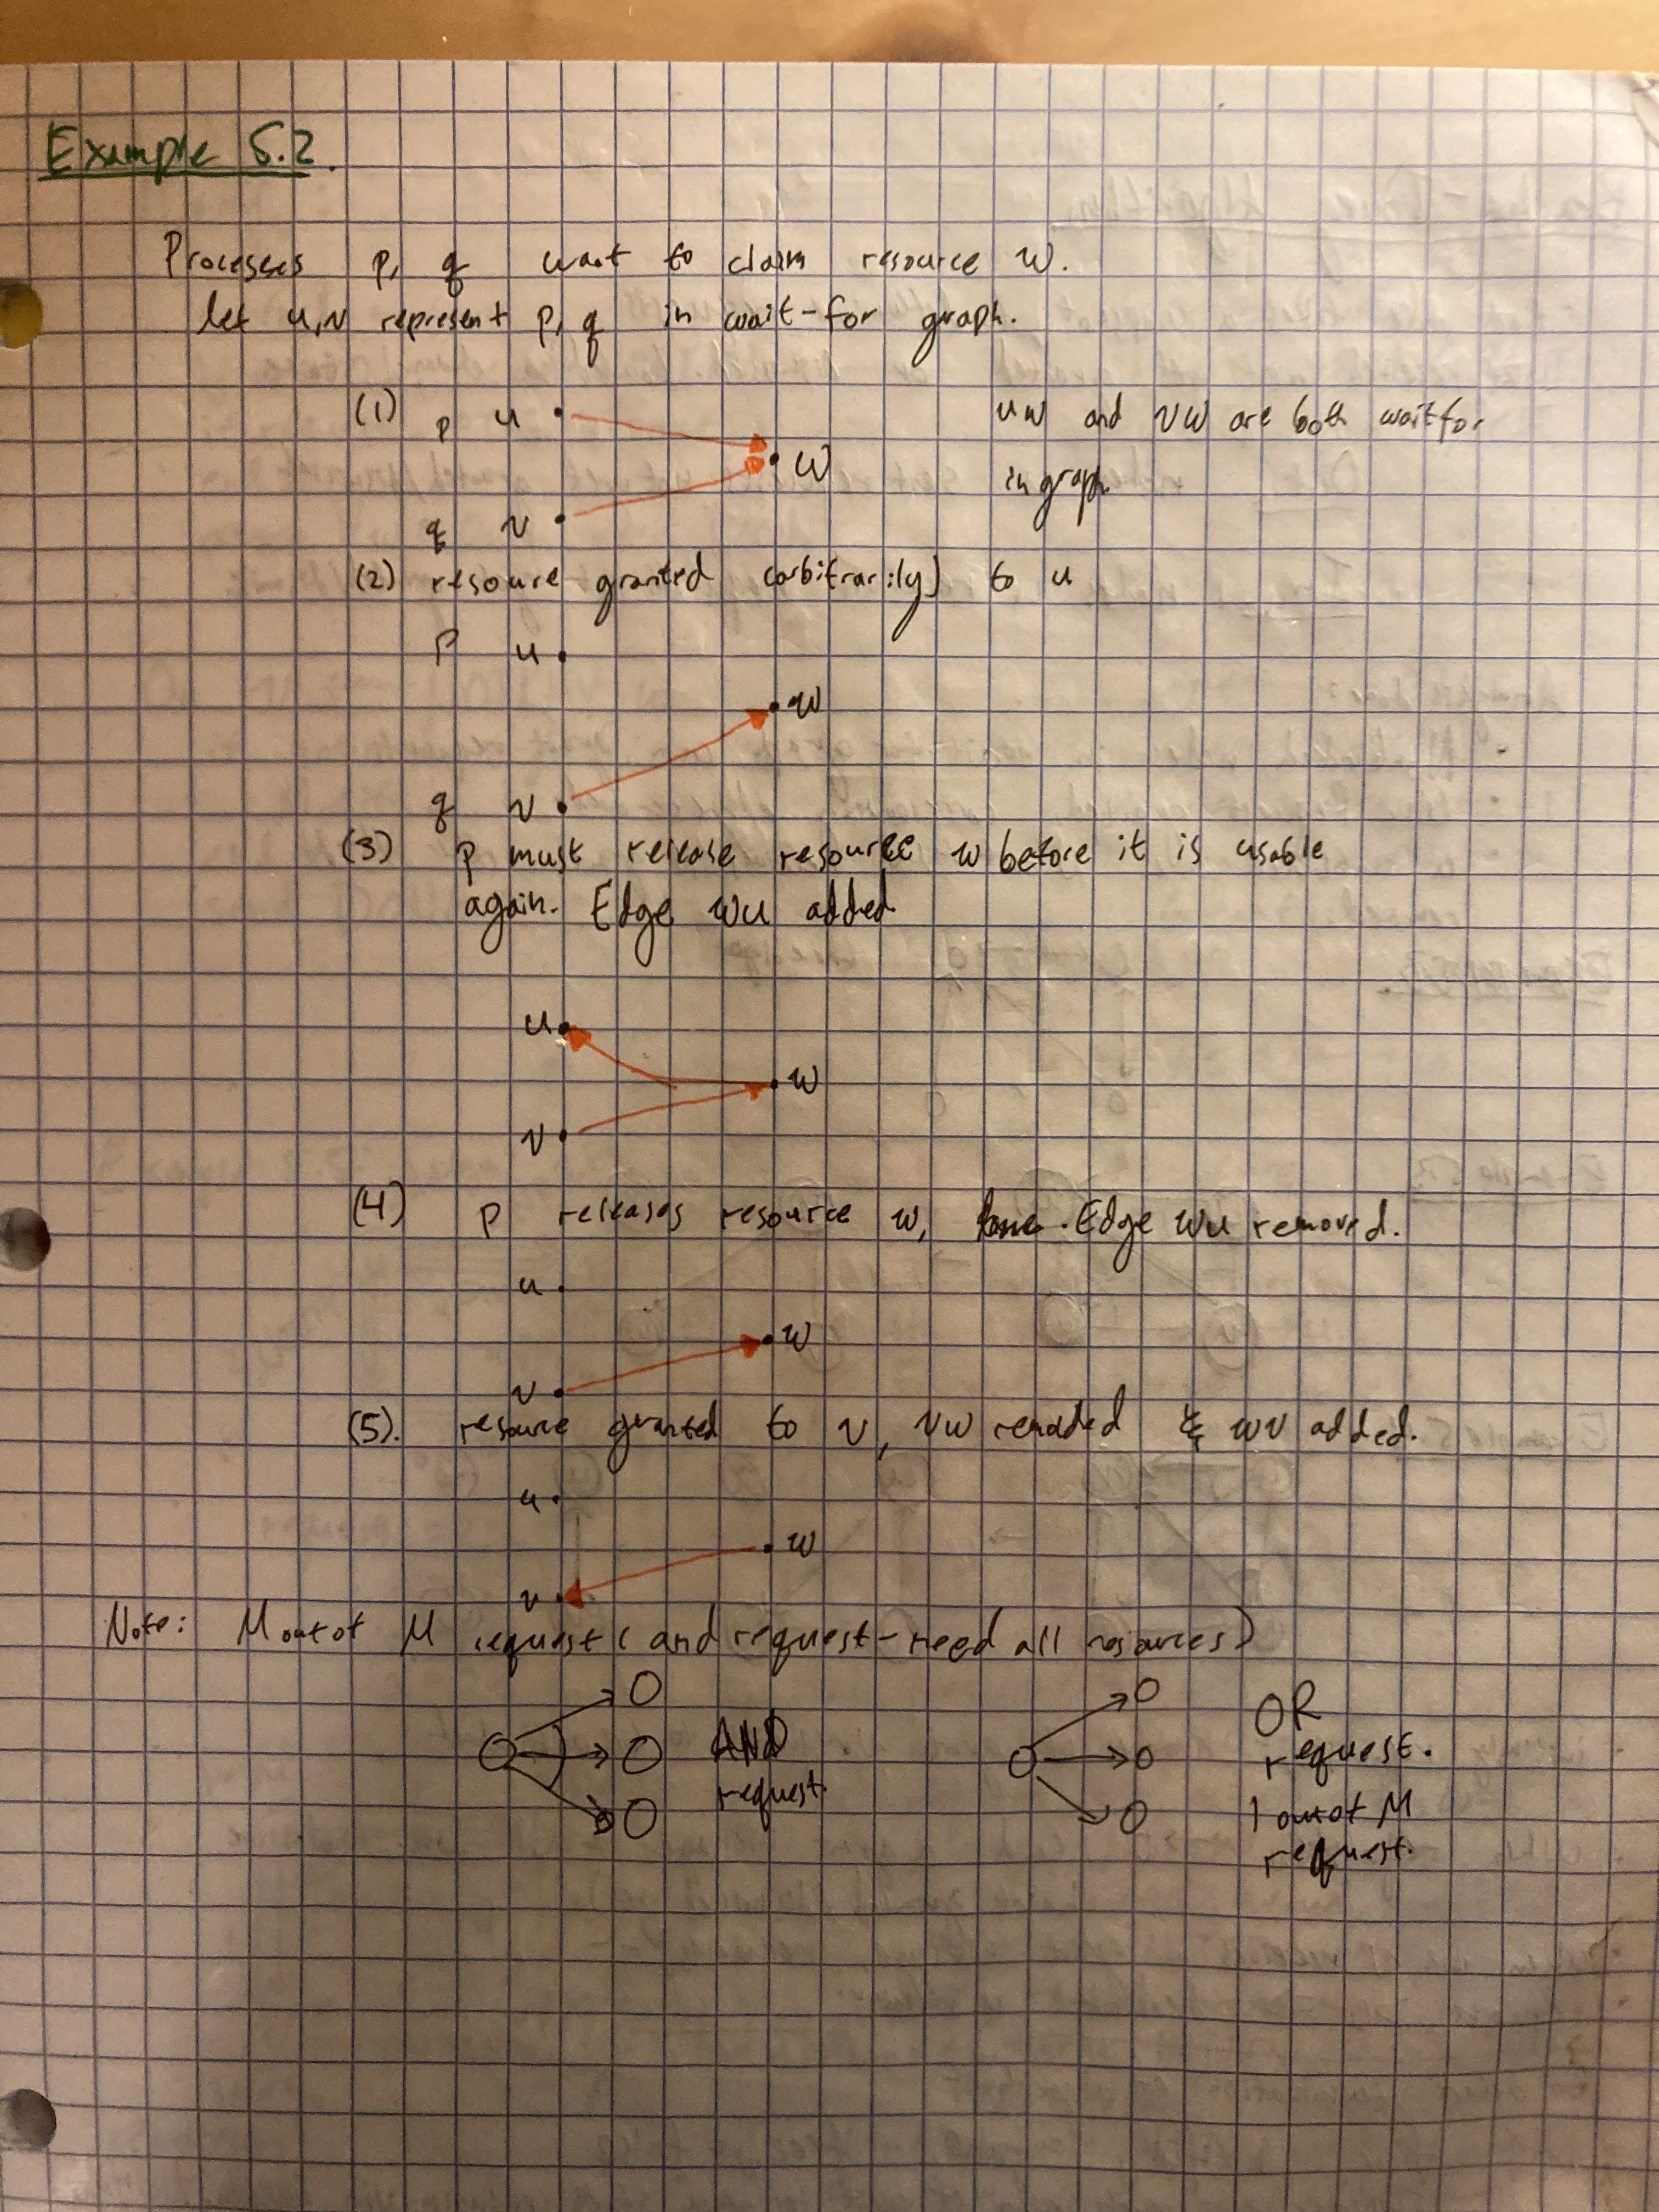 Example 5.2.
Processes p, q want to claim resource w.
let u,v represent p, q in wait-for graph.
(1) p u w uw and vw are both waitfor
in graph
q v
(2) resource granted (arbitrarily) to u
P u
w
q v
(3) p must release resource w before it is usable
again. Edge wu added
u
w
v
(4) p releases resource w, . Edge wu removed.
u
w
v
(5). resource granted to v, vw & wv added.
u
w
v
Note: M out of M request ( and request - need all resources)
AND
request.
OR
request.
1 out of M
request.